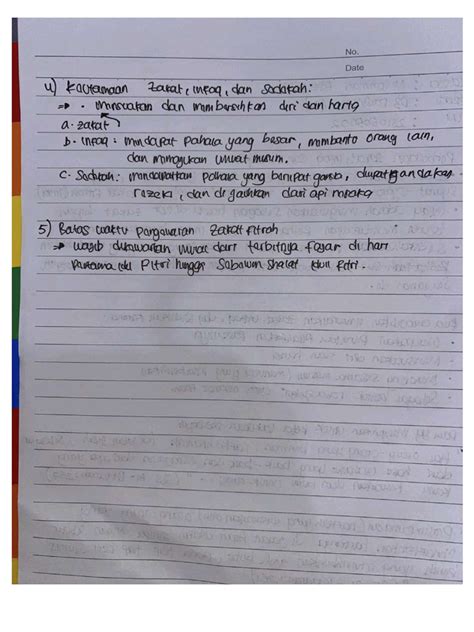 No.
Date
4) Keutamaan zakat, infaq, dan sedakah:
=> • mensucikan dan membersihkan diri dan harta
a. zakat
b. infaq : mendapat pahala yang besar, membantu orang lain,
dan umat muslim.
c. Sedekah: mendapatkan pahala yang berlipat ganda,
rezeki, dan di jauhkan dari api neraka
5) Batas waktu zakat fitrah
=> wajib dari terbitnya fajar di hari
pertama idul Fitri hingga sebelum shalat idul fitri.